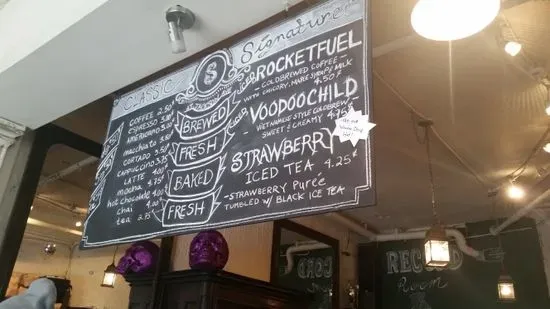 CLASSIC
COFFEE 2.50
ESPRESSO
AMERICANO
macchiato
CORTADO
CAPPUCCINO
LATTE 4.00
mocha 4.75
hot chocolate 4.00
chai 4.00
tea 2.75
S
BREWED
FRESH
BAKED
FRESH
Signature
ROCKETFUEL
- COLDBREWED COFFEE
WITH CHICORY, MAPLE SYRUP & MILK
4.50
VOODOOCHILD
- VIETNAMESE STYLE COLDBREW
SWEET & CREAMY 4.75
STRAWBERRY
ICED TEA 4.25
- STRAWBERRY PURÉE
TUMBLED W/ BLACK ICE TEA
RECORD
Room